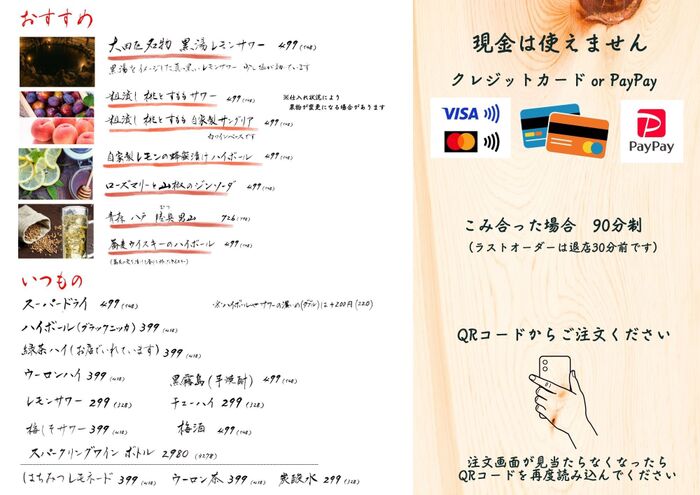 おすすめ
大田区名物 黒湯レモンサワー 499(548)
粗漉し桃とすももサワー 499(548)
※仕入れ状況により
果物が変更になる場合があります
粗漉し桃とすもも自家製サングリア 499(548)
白ワインベースです
自家製レモンの蜂蜜漬けハイボール 499(548)
ローズマリーと山椒のジンソーダ 499(548)
青森 八戸 陸奥男山 726
蕎麦ウイスキーのハイボール 499(548)
いつもの
スーパードライ 499(548)
ハイボール(ブラックニッカ) 399(438)
緑茶ハイ(お店でいれています) 399(438)
ウーロンハイ 399(438)
黒霧島(芋焼酎) 499(548)
レモンサワー 299(328)
チューハイ 299(328)
梅しそサワー 399(438)
梅酒 499(548)
スパークリングワイン ボトル 2980(3278)
はちみつレモネード 399(438) ウーロン茶 399(438) 炭酸水 299(328)
現金は使えません
クレジットカード or PayPay
VISA
PayPay
こみ合った場合 90分制
(ラストオーダーは退店30分前です)
QRコードからご注文ください
注文画面が見当たらなくなったら
QRコードを再度読み込んでください